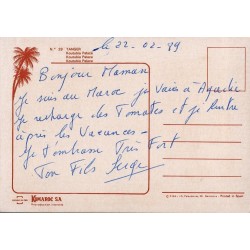 le 22-02-99
N.º 28 TANGER
Kouwara Palace
Kouwara Palace
Kouwara Palace
Bonjour Maman
Je suis au Maroc je Vais à Agadir
Je recharge des Tomates et je Rentre
après les Vacances -
Je t'embrasse Très Fort
Ton Fils Serge
KOMAROC SA